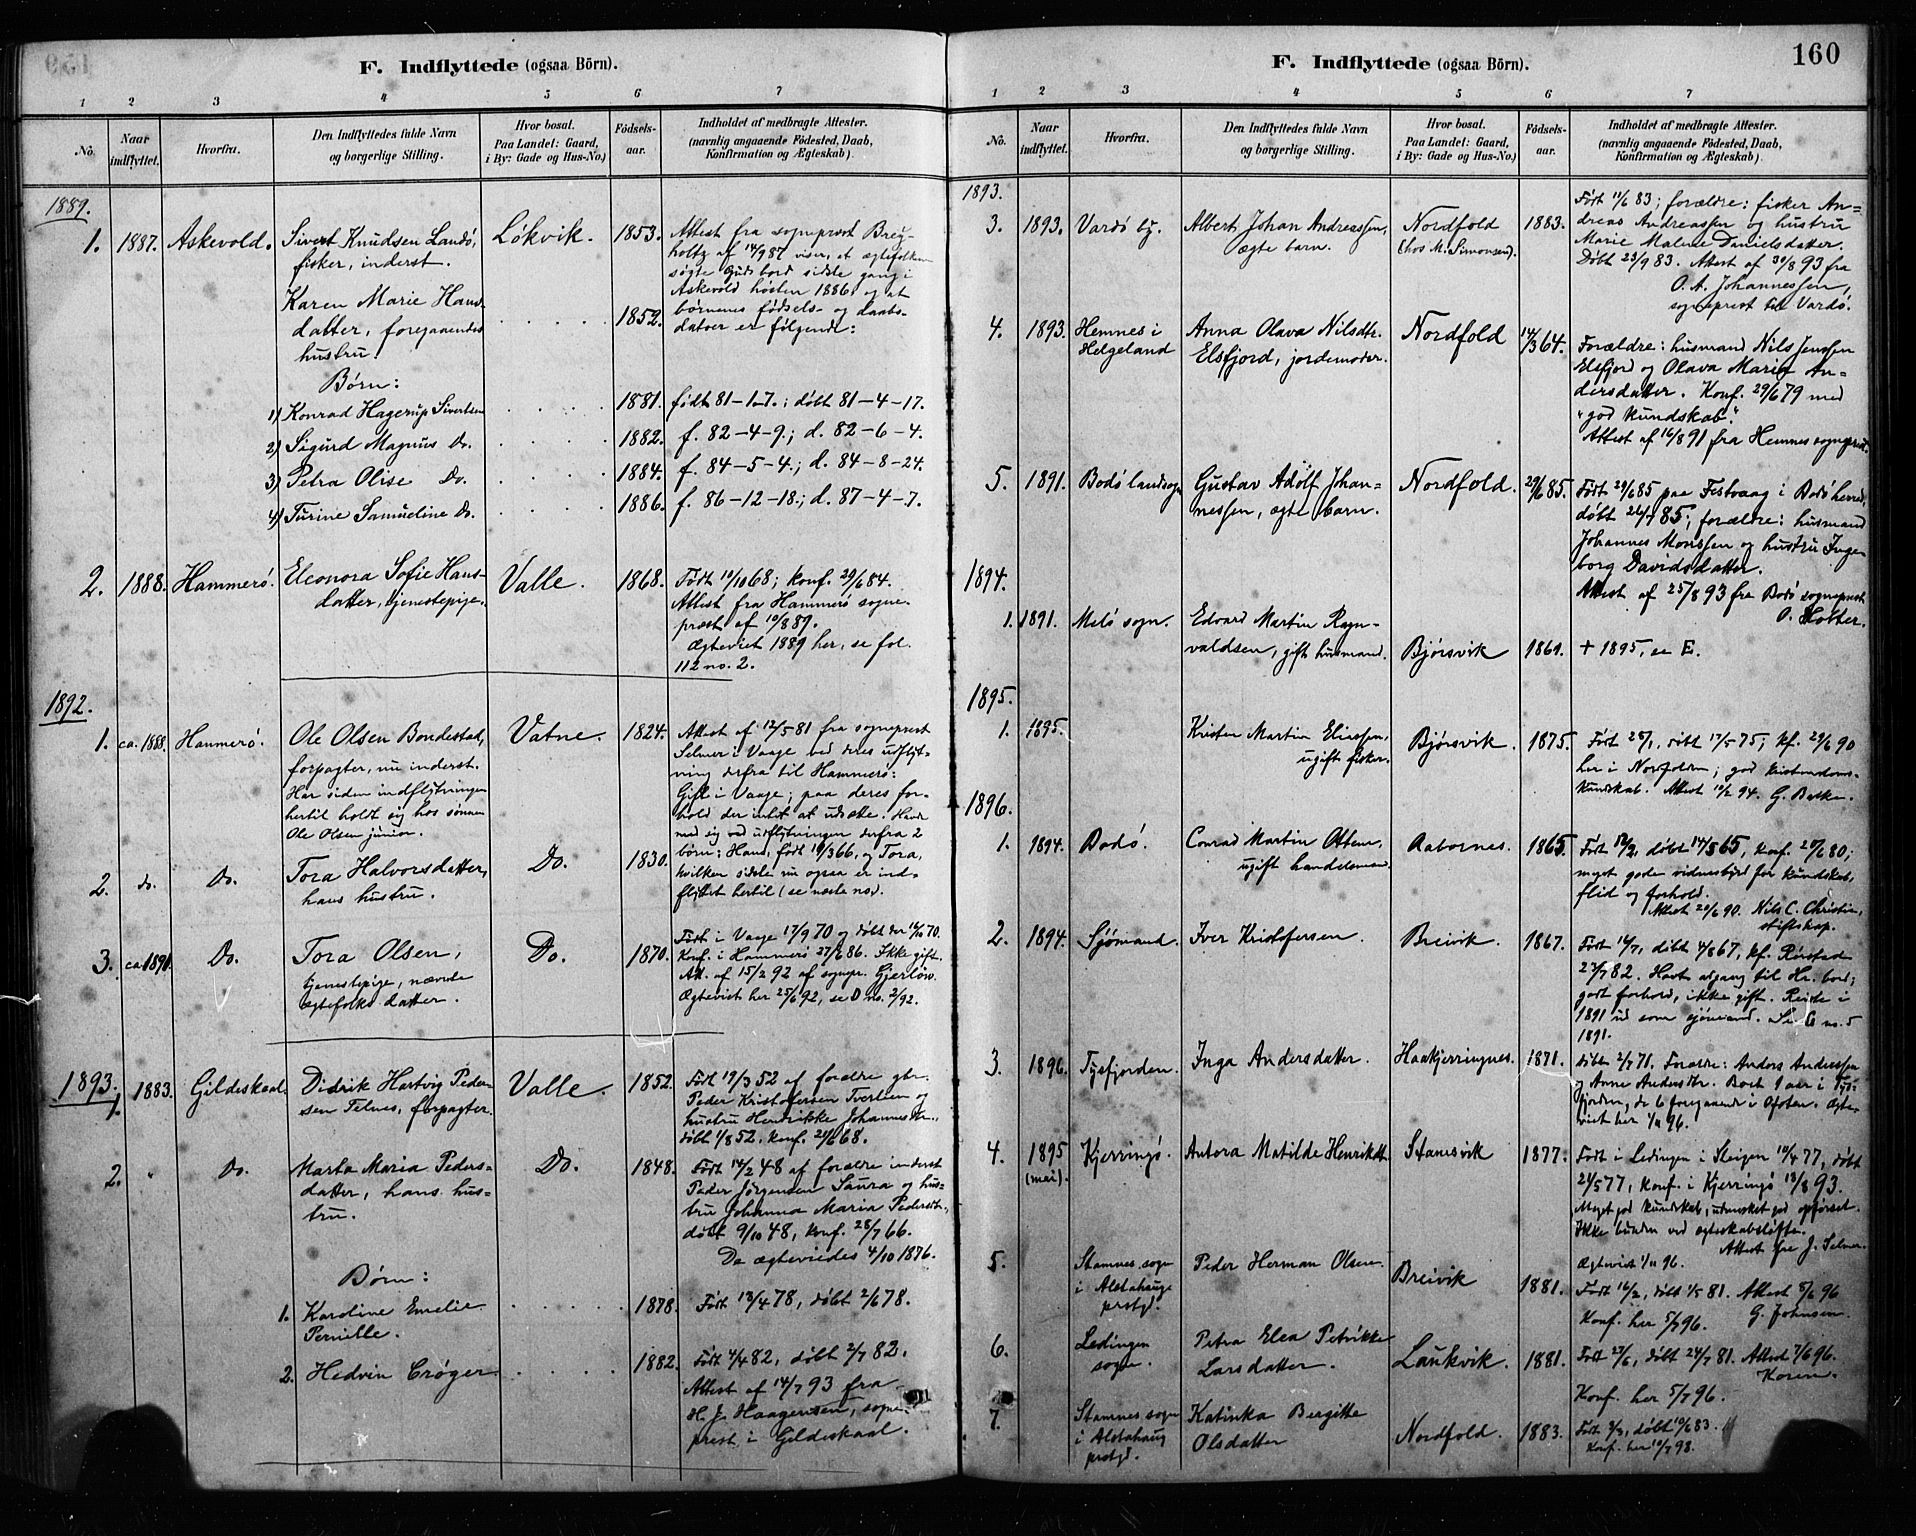 F. Indflyttede (ogsaa Börn).
1 2 3 4 5 6 7
No.
Naar indflyttet.
Hvorfra.
Den Indflyttedes fulde Navn
og borgerlige Stilling.
Hvor bosat.
Paa Landet: Gaard,
i By: Gade og Hus-No.)
Fødsels-
aar.
Indholdet af medbragte Attester.
(navnlig angaaende Födested, Daab,
Konfirmation og Ægteskab)
1889.
1. 1887. Askevold. Sivert Knudsen Landö, Løkvik. 1853. Attest fra sogneprest Brey-
fisker, inderst. holtz af 14/9 87 viser, at ægtefolkene
søgte Guds bord sidste gang i
Askevold høsten 1886 og at
Karen Marie Hans- 1852. børnenes fødsels- og daabs-
datter, foregaaendes datoer er følgende:
hustru.
Børn:
1) Konrad Hagerup Sivertsen 1881. født 81-1-7.; døbt 81-4-17.
2) Sigurd Magnus Do. 1882. f. 82-4-9.; d. 82-6-4.
3) Petra Olise Do. 1884. f. 84-5-4.; d. 84-8-24.
4) Turine Samueline Do. 1886. f. 86-12-18.; d. 87-4-7.
2. 1888. Hammerø. Eleonora Sofie Hans- Valle. 1868. Født 10/10 68; konf. 29/6 84.
datter, tjenestepige. Attest fra Hammerø sogne-
præst af 10/8 89.
Ægteviet 1889 her, se fol.
112 no. 2.
1892.
1. ca. 1888. Hammerø. Ole Olsen Bondestad, Vatne. 1824. Attest af 12/5 81 fra sogneprest
forpagter, nu inderst. Selmer i Vaage ved deres udflyt-
Har siden indflytningen ning derfra til Hammerø:
hertil holdt sig hos sønnen Gift i Vaage; paa deres for-
Ole Olsen junior. hold der intet at udsætte. Havde
med sig ved udflytningen derfra 2
2. do. Do. Tora Halvorsdatter, Do. 1830. børn: Hans, født 19/3 66, og Tora,
hans hustru. hvilken sidste nu ogsaa er ind-
flyttet hertil (se næste no.).
3. ca 1890. Do. Tora Olsen, Do. 1870. Født i Vaage 17/9 70 og døbt der 16/10 70.
tjenestepige, nævnte Konf. i Hammerø 27/6 86. Ikke gift.
ægtefolks datter. Att. af 15/2 92 af sognepr. Gjerløw.
Ægteviet her 25/6 92, se D no. 2/92.
1893.
1. 1883. Gildeskaal. Didrik Hartvig Peder- Valle. 1852. Født 19/3 52 af forældre gbr.
sen Telnes, forpagter. Peder Kristofersen Tverleen og
hustru Hendrikke Johannesdtr.,
døbt 1/8 52. Konf. 21/6 68.
2. " Do. Marta Maria Peders- Do. 1848. Født 14/2 48 af forældre inderst
datter, hans hus- Peder Jörgensen Saura og hus-
tru. tru Johanna Maria Pedersdtr.,
døbt 9/10 48, konf. 28/7 66.
De ægteviedes 4/10 1876.
Børn:
1. Karoline Emelie 1878. Født 13/4 78, døbt 2/6 78.
Pernille.
2. Hedvin Crøger 1882. Født 4/4 82, døbt 2/7 82.
Attest af 14/7 93 fra
H. J. Haagensen, sogne-
prest i Gildeskaal.
160
F. Indflyttede (ogsaa Börn).
1 2 3 4 5 6 7
No.
Naar indflyttet.
Hvorfra.
Den Indflyttedes fulde Navn
og borgerlige Stilling.
Hvor bosat.
Paa Landet: Gaard,
i By: Gade og Hus-No.)
Fødsels-
aar.
Indholdet af medbragte Attester.
(navnlig angaaende Födested, Daab,
Konfirmation og Ægteskab)
1893.
3. 1893. Vardö by. Albert Johan Andreassen, Nordfold 1883. Født 11/6 83; forældre: fisker An-
ægte barn. (hos M. Simonsen). dreas Andreassen og hustru
Marie Malene Danielsdatter.
Døbt 23/9 83. Attest af 30/8 93 fra
O. A. Johannessen,
sogneprest til Vardø.
4. 1893. Hemnes i Anna Olava Nilsdtr. Nordfold 14/3 64. Forældre: husmand Nils Jenssen
Helgeland Elsfjord, jordemoder. Elsfjord og Olava Maria An-
dersdatter. Konf. 29/6 79 med
"god kundskab".
Attest af 16/8 91 fra Hemnes sogneprest.
5. 1891. Bodö landsogn Gustav Adolf Johan- Nordfold. 29/6 85. Født 29/6 85 paa Festvaag i Bodö herred,
nessen, ægte barn. døbt 26/7 85; forældre: husmand
Johannes Monssen og hustru Inge-
borg Davidsdatter.
Attest af 25/8 93 fra Bodö sogneprest
O. Holter.
1894.
1. 1891. Melö sogn. Edvard Martin Ragn-
valdsen, gift husmand. Bjørsvik 1861. + 1895, se E.
1895.
1. 1895. Kristen Martin Eliassen, Bjørsvik. 1875. Født 25/1, døbt 17/5 75, kf. 29/6 90
ugift fisker. her i Norfolden; god kristendoms-
kundskab. Attest 10/2 94. G. Bakke.
1896.
1. 1894. Bodö. Conrad Martin Ottem, Aabornes. 1865. Født 12/2, døbt 14/5 65, konf. 20/6 80;
ugift handelsmand. meget gode vidnesbyrd for kundskab,
flid og forhold.
Attest 20/6 90. Nils C. Christie,
stiftskap.
2. 1894. Sjømand. Iver Kristofersen. Breivik. 1867. Født 16/7, døbt 4/8 67, kf. Rørstad
23/7 82. Havt adgang til Hr. bord;
godt forhold, ikke gift. Reiste i
1891 ud som sjömand. Se G no. 5
1891.
3. 1896. Tysfjorden. Inga Andersdatter. Haakjerringnes. 1871. Døbt 2/7 71. Forældre: Anders Anderssen
og Anne Andersdtr. Boet 1 aar i Tys-
fjorden, de 6 foregaaende i Ofoten. Ægte-
viet her 1/11 96.
4. 1895 Kjerringö. Antora Matilde Henriksdtr. Stavsvik 1877. Født i Ledingen i Steigen 10/4 77, døbt
(mai). 21/5 77, konf. i Kjerringö 13/8 93.
Meget god kundskab, udmerket god opförsel.
Ikke bunden ved ægteskabsløfte.
Attest fra J. Selmer.
Ægteviet 1/11 96.
5. Stamnes sogn Peder Herman Olsen. Breivik 1881. Født 16/2, døbt 1/5 81. Attest 5/6 96
i Alstahaugs G. Johnsen
prstgd. Konf. her 5/7 96.
6. Lødingen Petra Elea Petrikke Laukvik. 1881. Født 27/6, døbt 24/7 81. Attest 7/6 96.
sogn. Larsdatter. Koren.
Konf. her 5/7 96.
7. Stamnes sogn Katinka Bergitte Nordfold. 1883. Født 3/3, døbt 10/6 83.
i Alstahaug Olsdatter Konf. her 10/7 98.
prstgd.